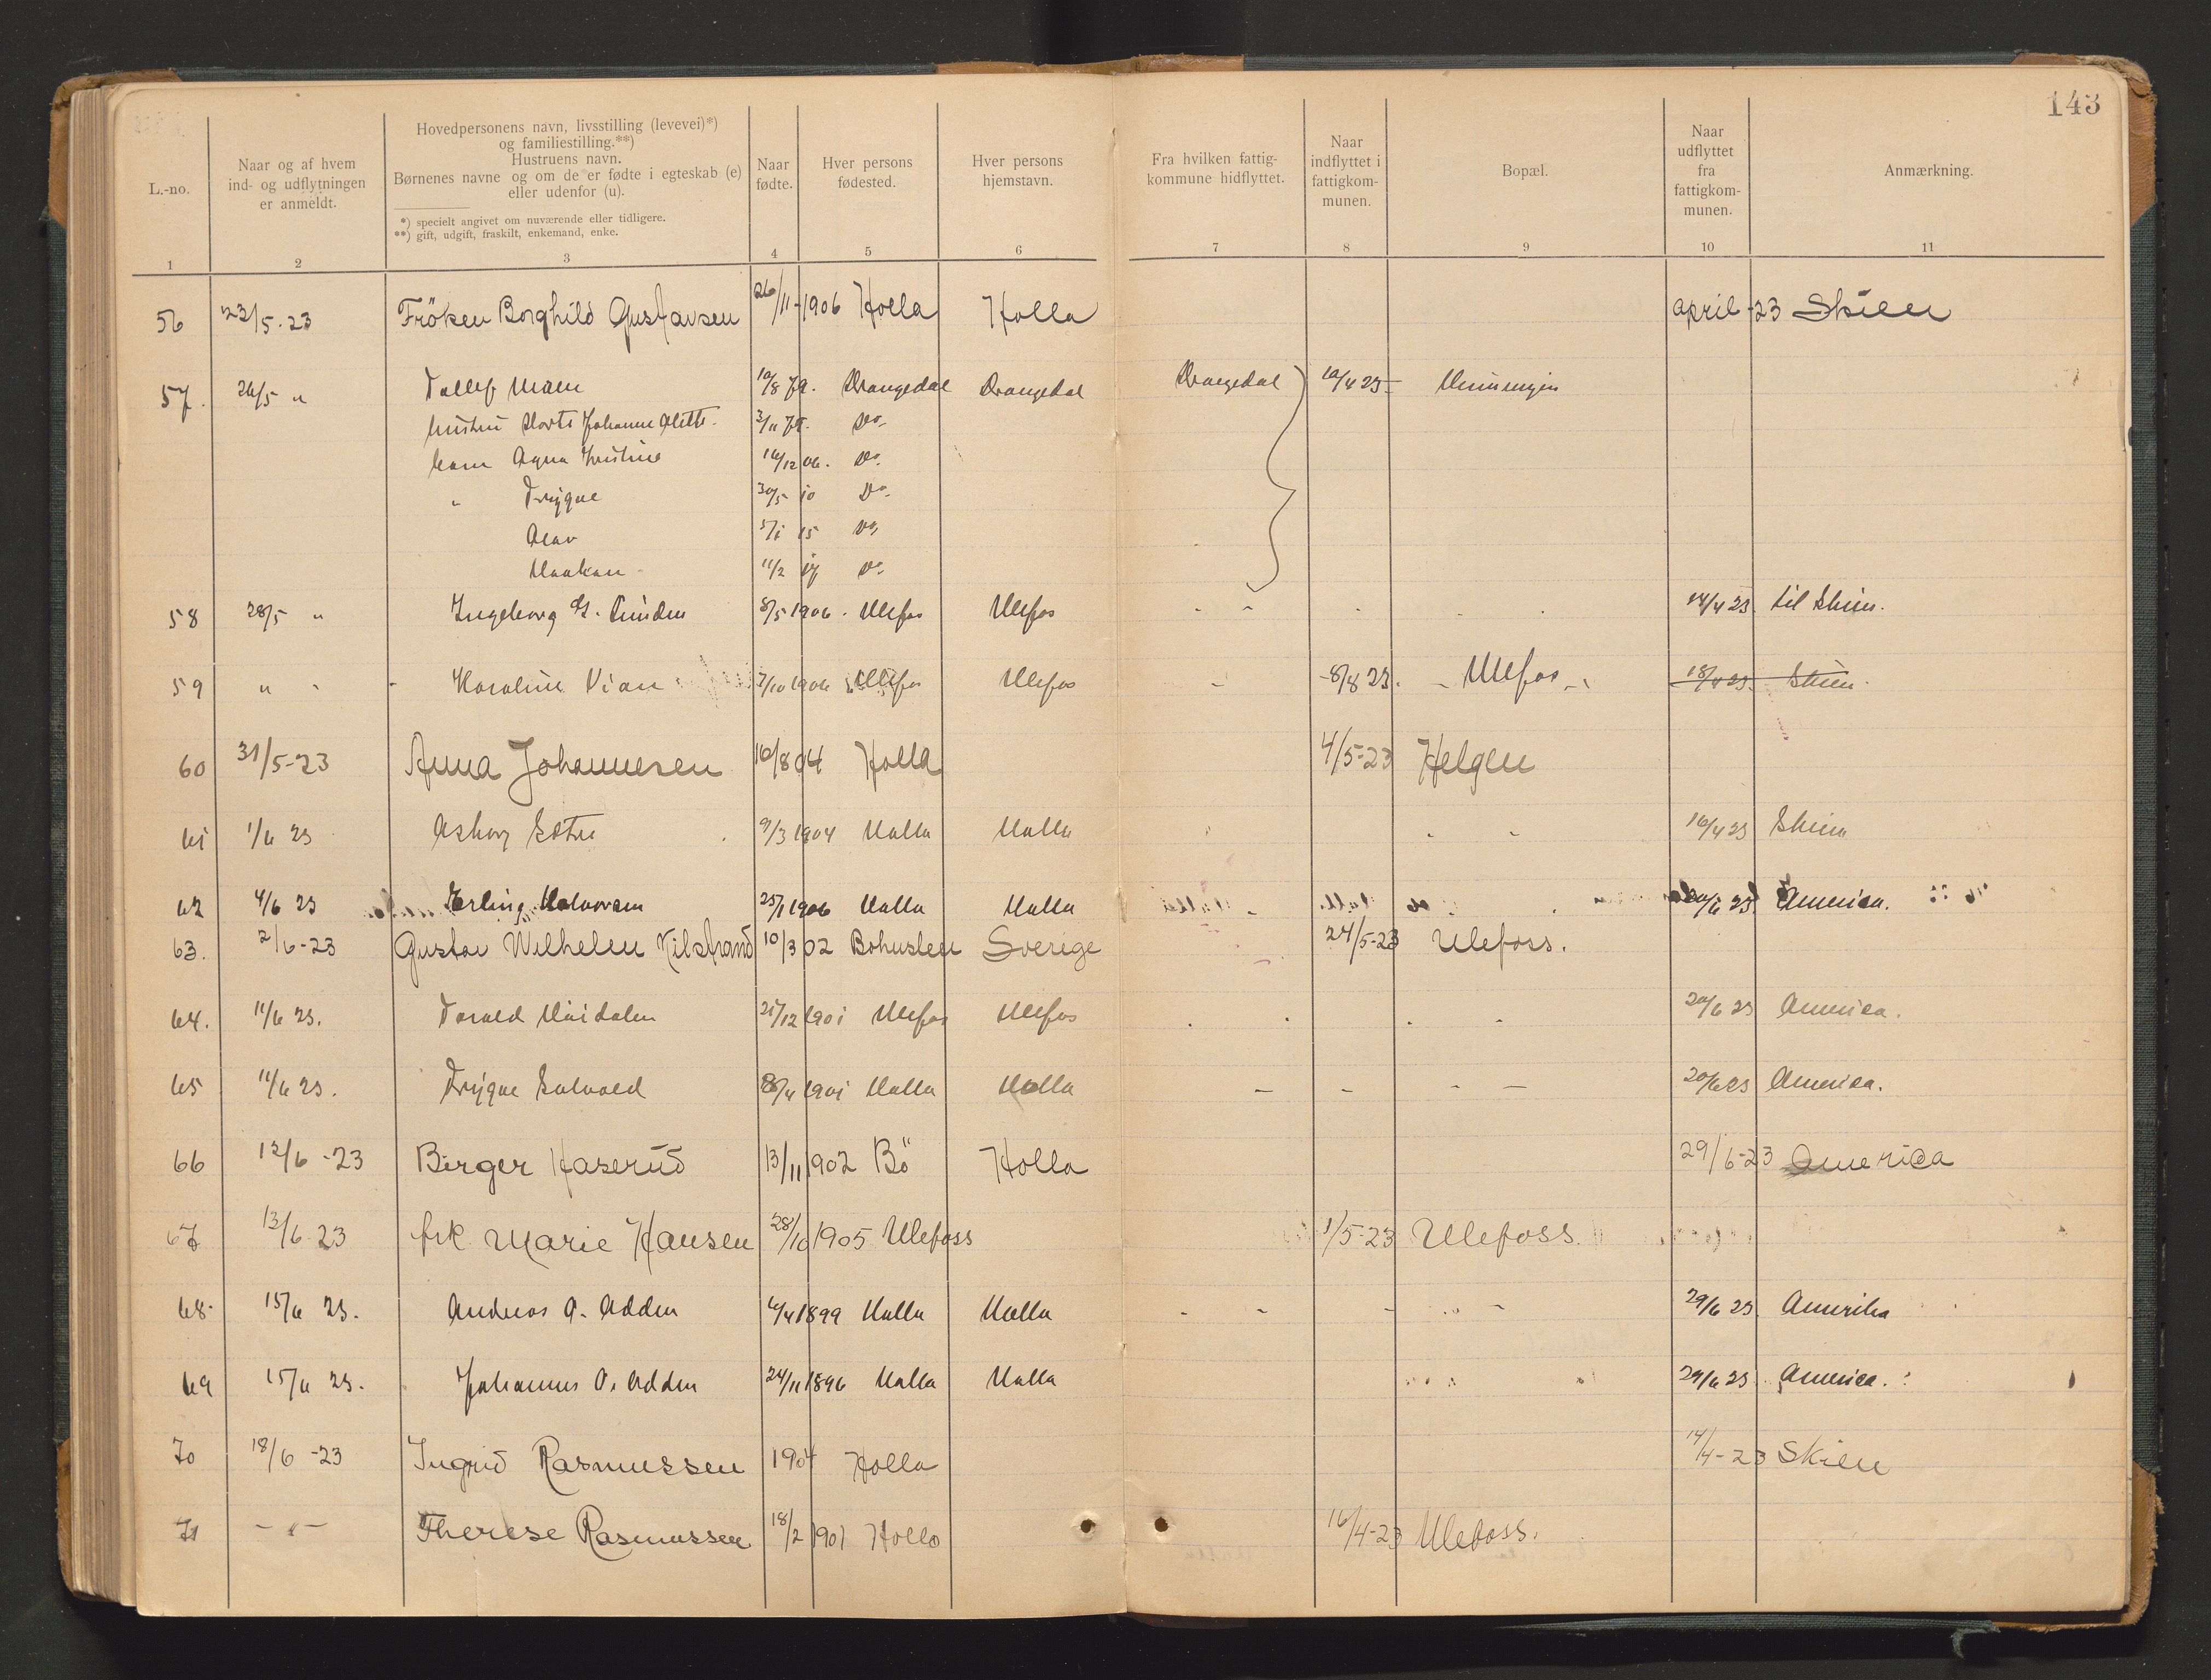 143
L.-no.
Naar og af hvem
ind- og udflytningen
er anmeldt.
Hovedpersonens navn, livsstilling (levevei)*)
og familiestilling.**)
Hustruens navn.
Børnenes navne og om de er fødte i egteskab (e)
eller udenfor (u).
*) specielt angivet om nuværende eller tidligere.
**) gift, udgift, fraskilt, enkemand, enke.
Naar
fødte.
Hver persons
fødested.
Hver persons
hjemstavn.
Fra hvilken fattig-
kommune hidflyttet.
Naar
indflyttet i
fattigkom-
munen.
Bopæl.
Naar
udflyttet
fra
fattigkom-
munen.
Anmærkning.
1 2 3 4 5 6 7 8 9 10 11
56 23/5-23 Fröken Borghild Gustavsen 26/11-1906 Holla Holla april-23 Skien
57. 26/5 " Tallef Moen 10/8 Drangedal Drangedal Drangedal 10/4 23
hustru Johanne 3/11 Do.
barn Agna Kristine 16/12 06. Do.
" Trygve 30/5 10 Do.
Olav 5/1 15 Do.
Haakon 11/2 Do.
58 28/5 " Ingeborg G. 8/5 1906. Ulefos Ulefos 14/4 23. til Skien.
59 " Karoline 7/10 1906 Ulefos Ulefos 8/8 23. Ulefos 18/4 23. Skien.
60 31/5-23 Anna Johannesen 10/8 04 Holla 4/5-23 Helgen
61 1/6 23 Asborg 9/3 1904 Holla Holla 16/4 23 Skien
62 4/6 23 Erling Halvorsen 25/1 1906 Holla Holla 23 America.
63. 2/6-23 Gustav Wilhelm Kilstrand 10/3 02 Bohuslen Sverige 24/5-23 Ulefoss.
64. 11/6 23. Torald 21/12 1901 Ulefos Ulefos 20/6 23 America.
65 11/6 23. Trygve 1901 Holla Holla 20/6 23 America.
66 12/6-23 Birger Haserud 13/11 1902 Bö Holla 29/6-23 America
67 13/6 23 frk Marie Hansen 28/10 1905 Ulefoss 1/5-23 Ulefoss
68. 15/6 23. Andreas O. Adden 1899 Holla Holla 29/6 23. Amerika
69 15/6 23. Johannes O. Adden 24/11 1896 Holla Holla 29/6 23. America.
70 18/6-23 Ingrid Rasmussen 1904 Holla 14/4-23 Skien
71 -"- Therese Rasmussen 18/2 1901 Holla 16/4-23 Ulefoss.